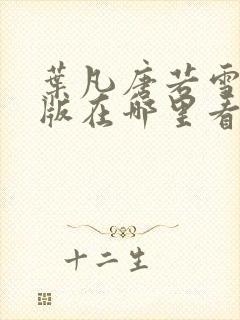 葉凡唐若雪
版在哪里看
十二生